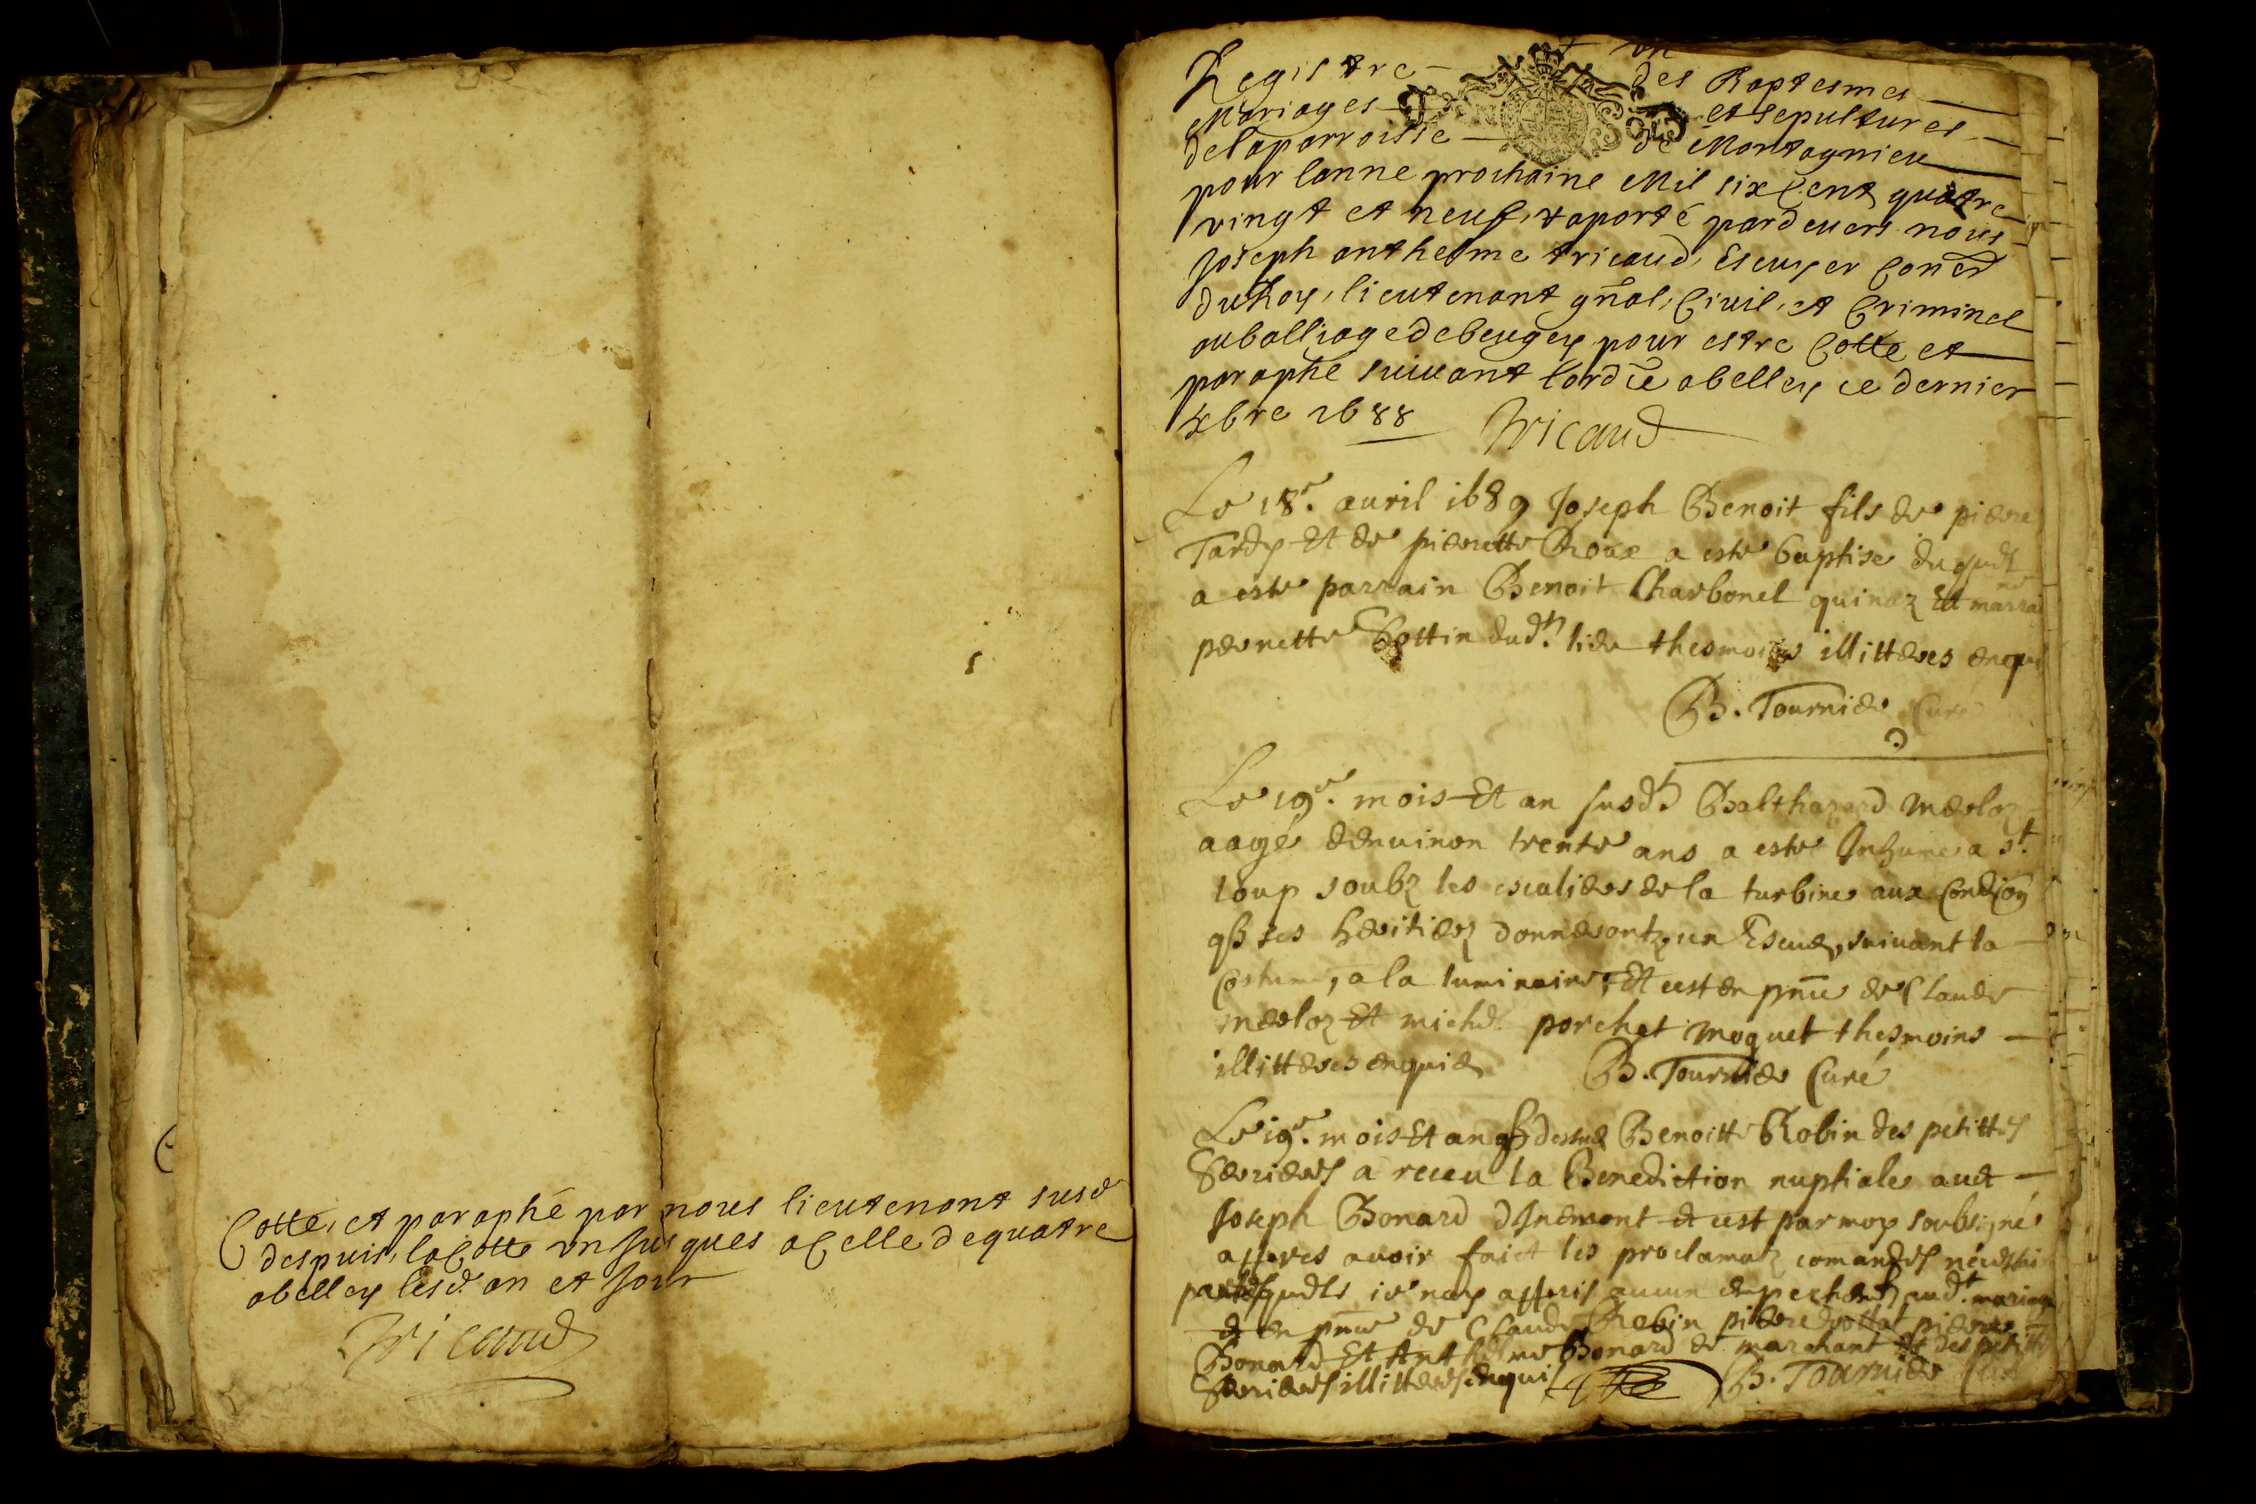 Cotté, et paraphé par nous lieutenant susd
despuis la Cotte un jusques a Celle de quatre
a belley lesd. an et jour
Tricaud
un
Registre des Baptesmes
Mariages et sepultures
de la parroisse de Montagnieu
pour lanne prochaine Mil six Cent quatre
vingt et neuf, raporté pardevers nous
Joseph anthelme tricaud, Escuyer Coner
du Roy, lieutenant gñal, Civil, et Criminel
au balliage de beugey pour estre Cotte et
paraphé suivant lordce a belley ce dernier
xbre 1688 Tricaud
Le 18e. avril 1689 Joseph Benoit fils de piere
Tardy Et de pierette Roux a este baptise duquel
a este parrain Benoit Charbonel quinaz Et marraine
pernette Cottin dud. lieu thesmoins illitteres enquis
B. Tournier Curé
Le 19e. mois Et an susd. Balthazard Merloz
aagé denuiron trente ans a este Inhume a St.
loup soubz les escaliers de la turbine aux Condiõn
que ses heritiers donneront un Escu, suivant la
Costume, a la luminaire, Et cest en pñce de Claude
merloz Et michel porchet moquet thesmoins
illitteres enquis B. Tournier Curé
Le 19e. mois Et an que dessus Benoitte Robin des petittes
Serrieres a receu la Benediction nuptiale auec
Joseph Bonard dJnemont et cest par moy soubsigné
appres avoir faict les proclamaz
je nay appris aucun empechent aud. mariage
et en pñce de Claude Robin piere
Bonard Et Anthelme Bonard marchant des petittes
Serrieres illitteres enquis B. Tournier Curé